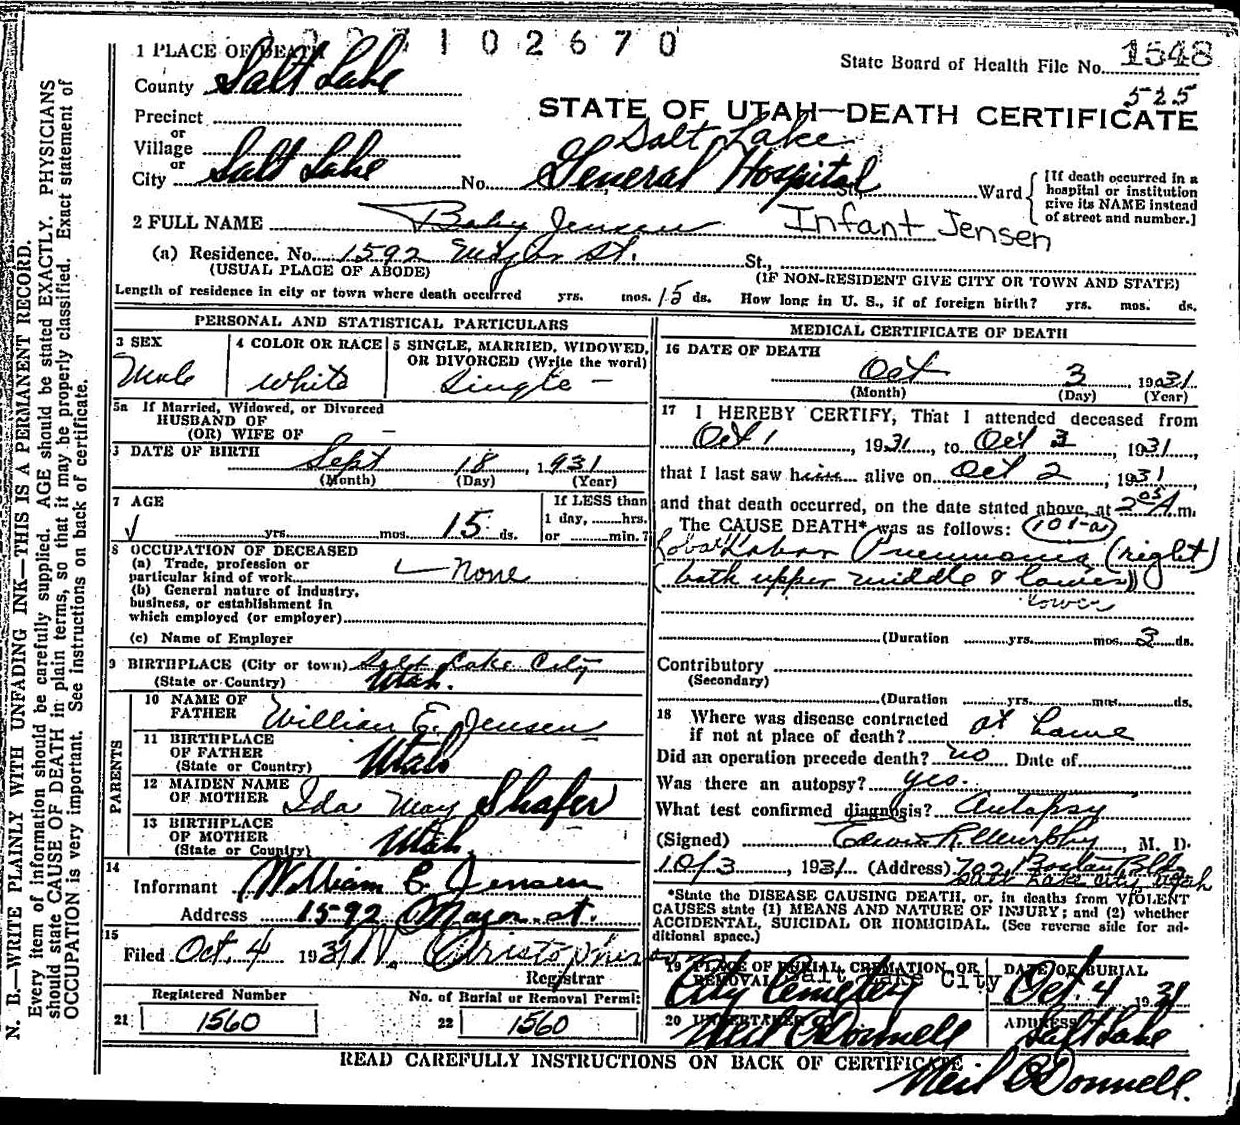 1 0 2 6 7 0
1 PLACE OF DEATH
State Board of Health File No. 1548
County Salt Lake
525
STATE OF UTAH—DEATH CERTIFICATE
Precinct
or
Village
or
City Salt Lake No. Salt Lake General Hospital St., Ward
[If death occurred in a hospital or institution give its NAME instead of street and number.]
2 FULL NAME Baby Jensen Infant Jensen
(a) Residence. No. 1592 St. St.,
(USUAL PLACE OF ABODE) (IF NON-RESIDENT GIVE CITY OR TOWN AND STATE)
Length of residence in city or town where death occurred yrs. mos. 15 ds. How long in U. S., if of foreign birth? yrs. mos. ds.
PERSONAL AND STATISTICAL PARTICULARS
3 SEX 4 COLOR OR RACE 5 SINGLE, MARRIED, WIDOWED, OR DIVORCED (Write the word)
Male White Single -
5a If Married, Widowed, or Divorced
HUSBAND OF
(OR) WIFE OF -
DATE OF BIRTH Sept 18, 1931
(Month) (Day) (Year)
7 AGE If LESS than
yrs. mos. 15 ds. 1 day, hrs.
or min.?
8 OCCUPATION OF DECEASED
(a) Trade, profession or
particular kind of work None
(b) General nature of industry,
business, or establishment in
which employed (or employer)
(c) Name of Employer
9 BIRTHPLACE (City or town) Salt Lake City
(State or Country) Utah.
PARENTS
10 NAME OF FATHER William E. Jensen
11 BIRTHPLACE OF FATHER (State or Country) Utah
12 MAIDEN NAME OF MOTHER Ida May Shafer
13 BIRTHPLACE OF MOTHER (State or Country) Utah
14
Informant William E. Jensen
Address 1592 Major st.
15
Filed Oct. 4 1931
Registrar
Registered Number No. of Burial or Removal Permit
21 1560 22 1560
MEDICAL CERTIFICATE OF DEATH
16 DATE OF DEATH
Oct 3, 1931
(Month) (Day) (Year)
17 I HEREBY CERTIFY, That I attended deceased from
Oct 1, 1931, to Oct 3, 1931,
that I last saw him alive on Oct 2, 1931,
and that death occurred, on the date stated above, at 2 05 A m.
The CAUSE DEATH* was as follows: (101-a)
Lobar Lobar Pneumonia (right)
(both upper middle & lower)
lower
(Duration yrs. mos. 3 ds.
Contributory
(Secondary)
(Duration yrs. mos. ds.
18 Where was disease contracted
if not at place of death? at home
Did an operation precede death? no Date of
Was there an autopsy? yes.
What test confirmed diagnosis? Autopsy
(Signed) Edwin R. Murphy, M. D.
10/3, 1931 (Address) 702 Boston Bldg
Salt Lake City, Utah
*State the DISEASE CAUSING DEATH, or, in deaths from VIOLENT
CAUSES state (1) MEANS AND NATURE OF INJURY; and (2) whether
ACCIDENTAL, SUICIDAL OR HOMICIDAL. (See reverse side for ad-
ditional space.)
19 PLACE OF BURIAL, CREMATION, OR REMOVAL DATE OF BURIAL
Salt Lake City
City Cemetery Oct 4 1931
20 UNDERTAKER ADDRESS
Neil O'Donnell Salt Lake
READ CAREFULLY INSTRUCTIONS ON BACK OF CERTIFICATE
Neil O'Donnell.
N. B.—WRITE PLAINLY WITH UNFADING INK—THIS IS A PERMANENT RECORD.
Every item of information should be carefully supplied. AGE should be stated EXACTLY. PHYSICIANS
should state CAUSE OF DEATH in plain terms, so that it may be properly classified. Exact statement of
OCCUPATION is very important. See instructions on back of certificate.